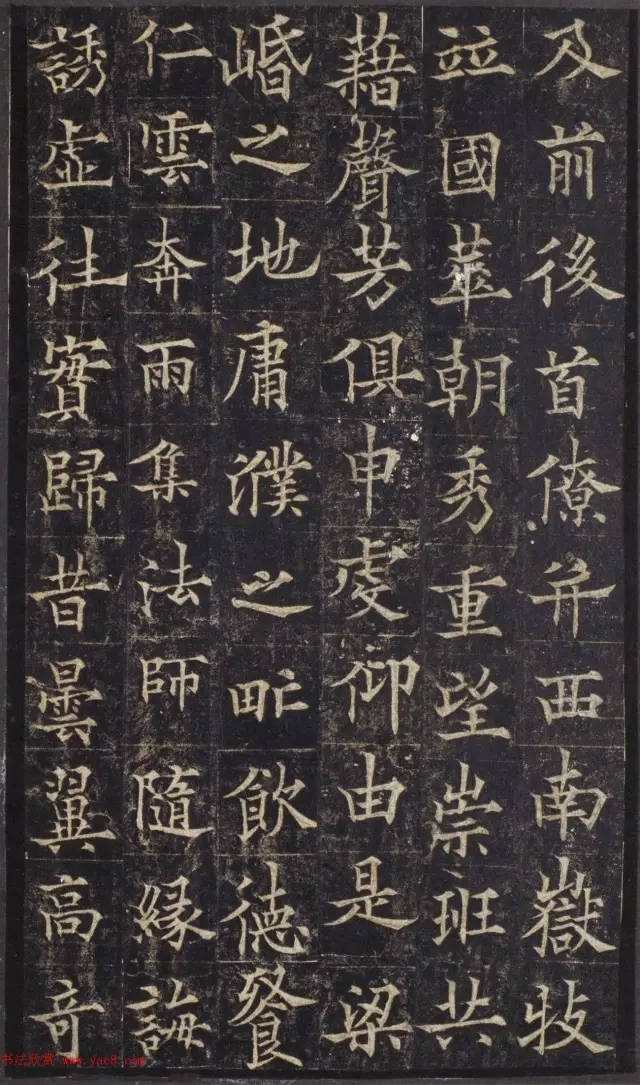 及前後首僚并西南嶽牧
竝國華朝秀重望崇班共
藉聲芳俱申虔仰由是梁
崏之地庸濮之甿飲德餐
仁雲奔雨集法師隨緣誨
誘虛往實歸昔曇翼高奇
书法欣赏 www.yac8.com